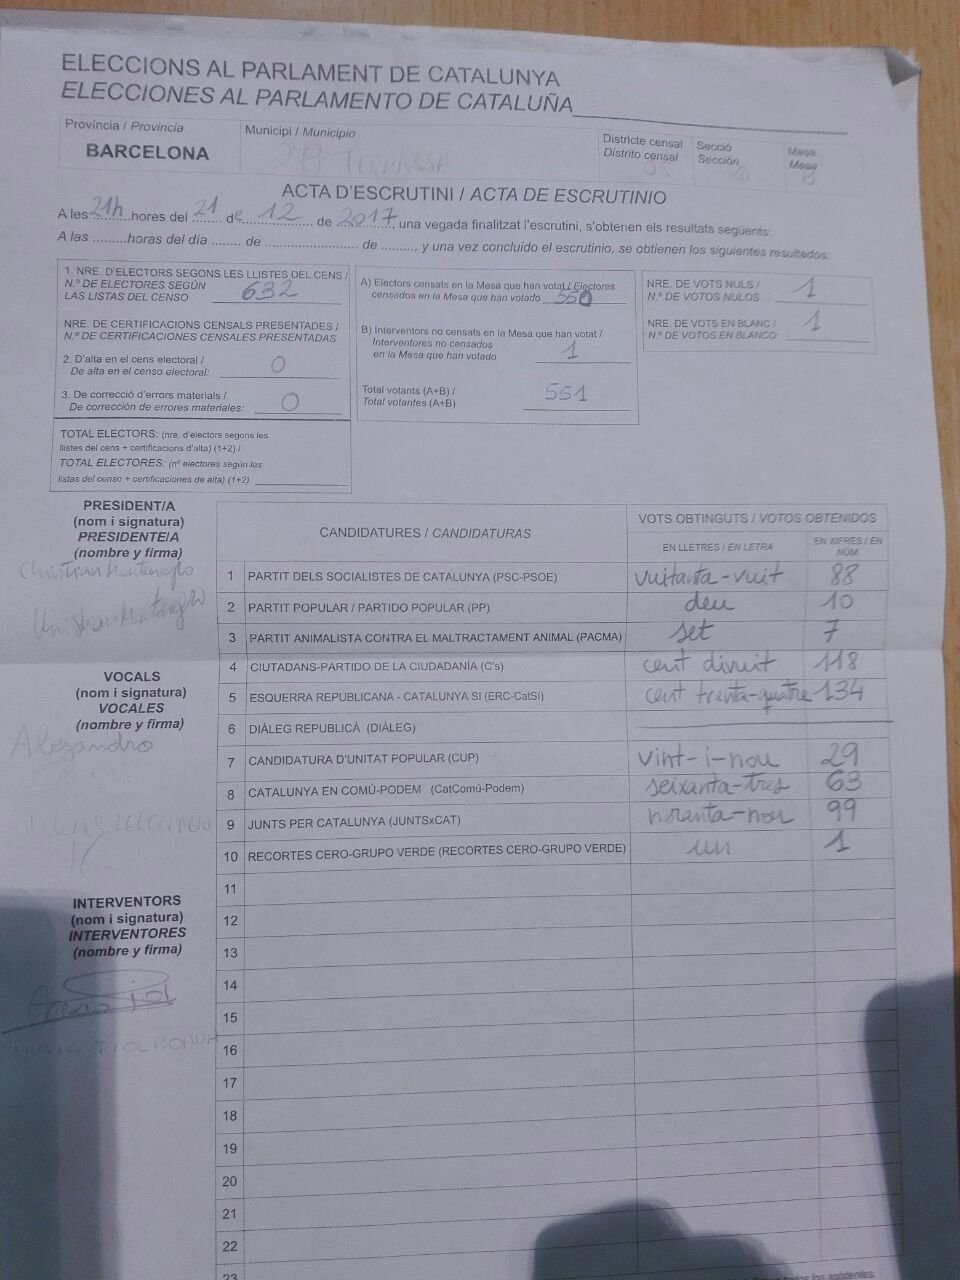 ELECCIONS AL PARLAMENT DE CATALUNYA
ELECCIONES AL PARLAMENTO DE CATALUÑA
Província / Provincia
BARCELONA
Municipi / Municipio
279 TERRASSA
Districte censal
Distrito censal
Secció
Sección
Mesa
Mesa
B
ACTA D'ESCRUTINI / ACTA DE ESCRUTINIO
A les 21h hores del 21 de 12 de 2017, una vegada finalitzat l'escrutini, s'obtenen els resultats següents:
A las .........horas del día ........ de ............................ de .........., y una vez concluido el escrutinio, se obtienen los siguientes resultados:
1. NRE. D'ELECTORS SEGONS LES LLISTES DEL CENS /
N.º DE ELECTORES SEGÚN
LAS LISTAS DEL CENSO 632
NRE. DE CERTIFICACIONS CENSALS PRESENTADES /
N.º DE CERTIFICACIONES CENSALES PRESENTADAS
2. D'alta en el cens electoral /
De alta en el censo electoral: 0
3. De correcció d'errors materials /
De corrección de errores materiales: 0
TOTAL ELECTORS: (nre. d'electors segons les
llistes del cens + certificacions d'alta) (1+2) /
TOTAL ELECTORES: (nº electores según las
listas del censo + certificaciones de alta) (1+2)
A) Electors censats en la Mesa que han votat / Electores
censados en la Mesa que han votado 550
B) Interventors no censats en la Mesa que han votat /
Interventores no censados
en la Mesa que han votado 1
Total votants (A+B) /
Total votantes (A+B) 551
NRE. DE VOTS NULS /
N.º DE VOTOS NULOS 1
NRE. DE VOTS EN BLANC /
N.º DE VOTOS EN BLANCO 1
PRESIDENT/A
(nom i signatura)
PRESIDENTE/A
(nombre y firma)
Christian Montenegro
Christian Montenegro
VOCALS
(nom i signatura)
VOCALES
(nombre y firma)
Alejandro
INTERVENTORS
(nom i signatura)
INTERVENTORES
(nombre y firma)
CANDIDATURES / CANDIDATURAS
VOTS OBTINGUTS / VOTOS OBTENIDOS
EN LLETRES / EN LETRA
EN XIFRES / EN NÚM.
1 PARTIT DELS SOCIALISTES DE CATALUNYA (PSC-PSOE) vuitanta-vuit 88
2 PARTIT POPULAR / PARTIDO POPULAR (PP) deu 10
3 PARTIT ANIMALISTA CONTRA EL MALTRACTAMENT ANIMAL (PACMA) set 7
4 CIUTADANS-PARTIDO DE LA CIUDADANÍA (C's) cent divuit 118
5 ESQUERRA REPUBLICANA - CATALUNYA SI (ERC-CatSí) cent trenta-quatre 134
6 DIÀLEG REPUBLICÀ (DIÀLEG)
7 CANDIDATURA D'UNITAT POPULAR (CUP) vint-i-nou 29
8 CATALUNYA EN COMÚ-PODEM (CatComú-Podem) seixanta-tres 63
9 JUNTS PER CATALUNYA (JUNTSxCAT) noranta-nou 99
10 RECORTES CERO-GRUPO VERDE (RECORTES CERO-GRUPO VERDE) un 1
11
12
13
14
15
16
17
18
19
20
21
22
23